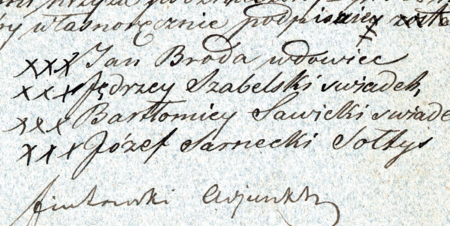 własnoręcznie podpisany
xxx Jan Broda wdowiec
xxx Jędrzey Szabelski swiadek
xxx Bartłomiey Sawicki swiade
xxx Józef Sarnecki Sołtys
Adjunkt